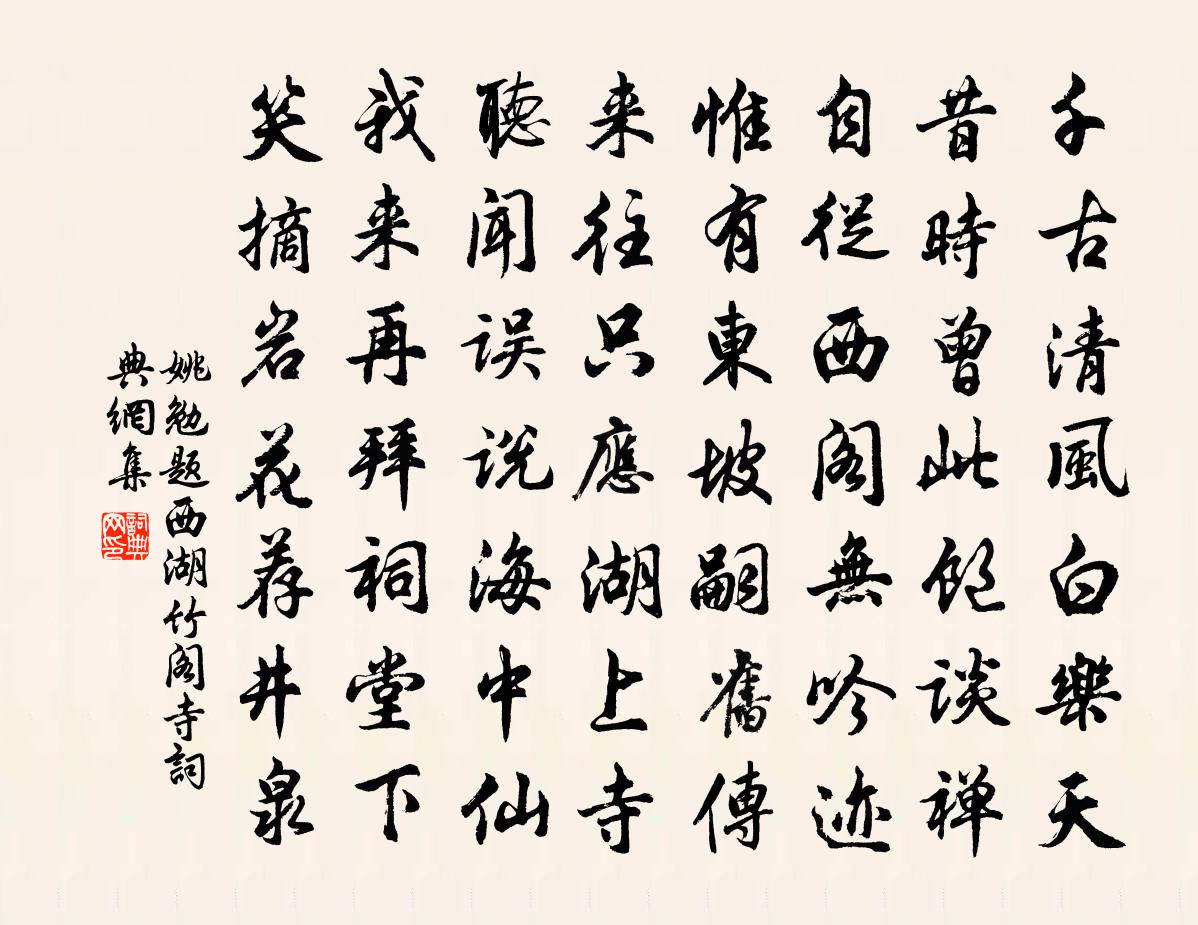 千古清風白樂天
昔時曾此飽談禅
自從西阁無吟迹
惟有東坡嗣舊傳
来往只應湖上寺
聽闻误说海中仙
我来再拜祠堂下
笑摘岩花荐井泉
姚勉题西湖竹阁寺詞
典網集
詞典
网印